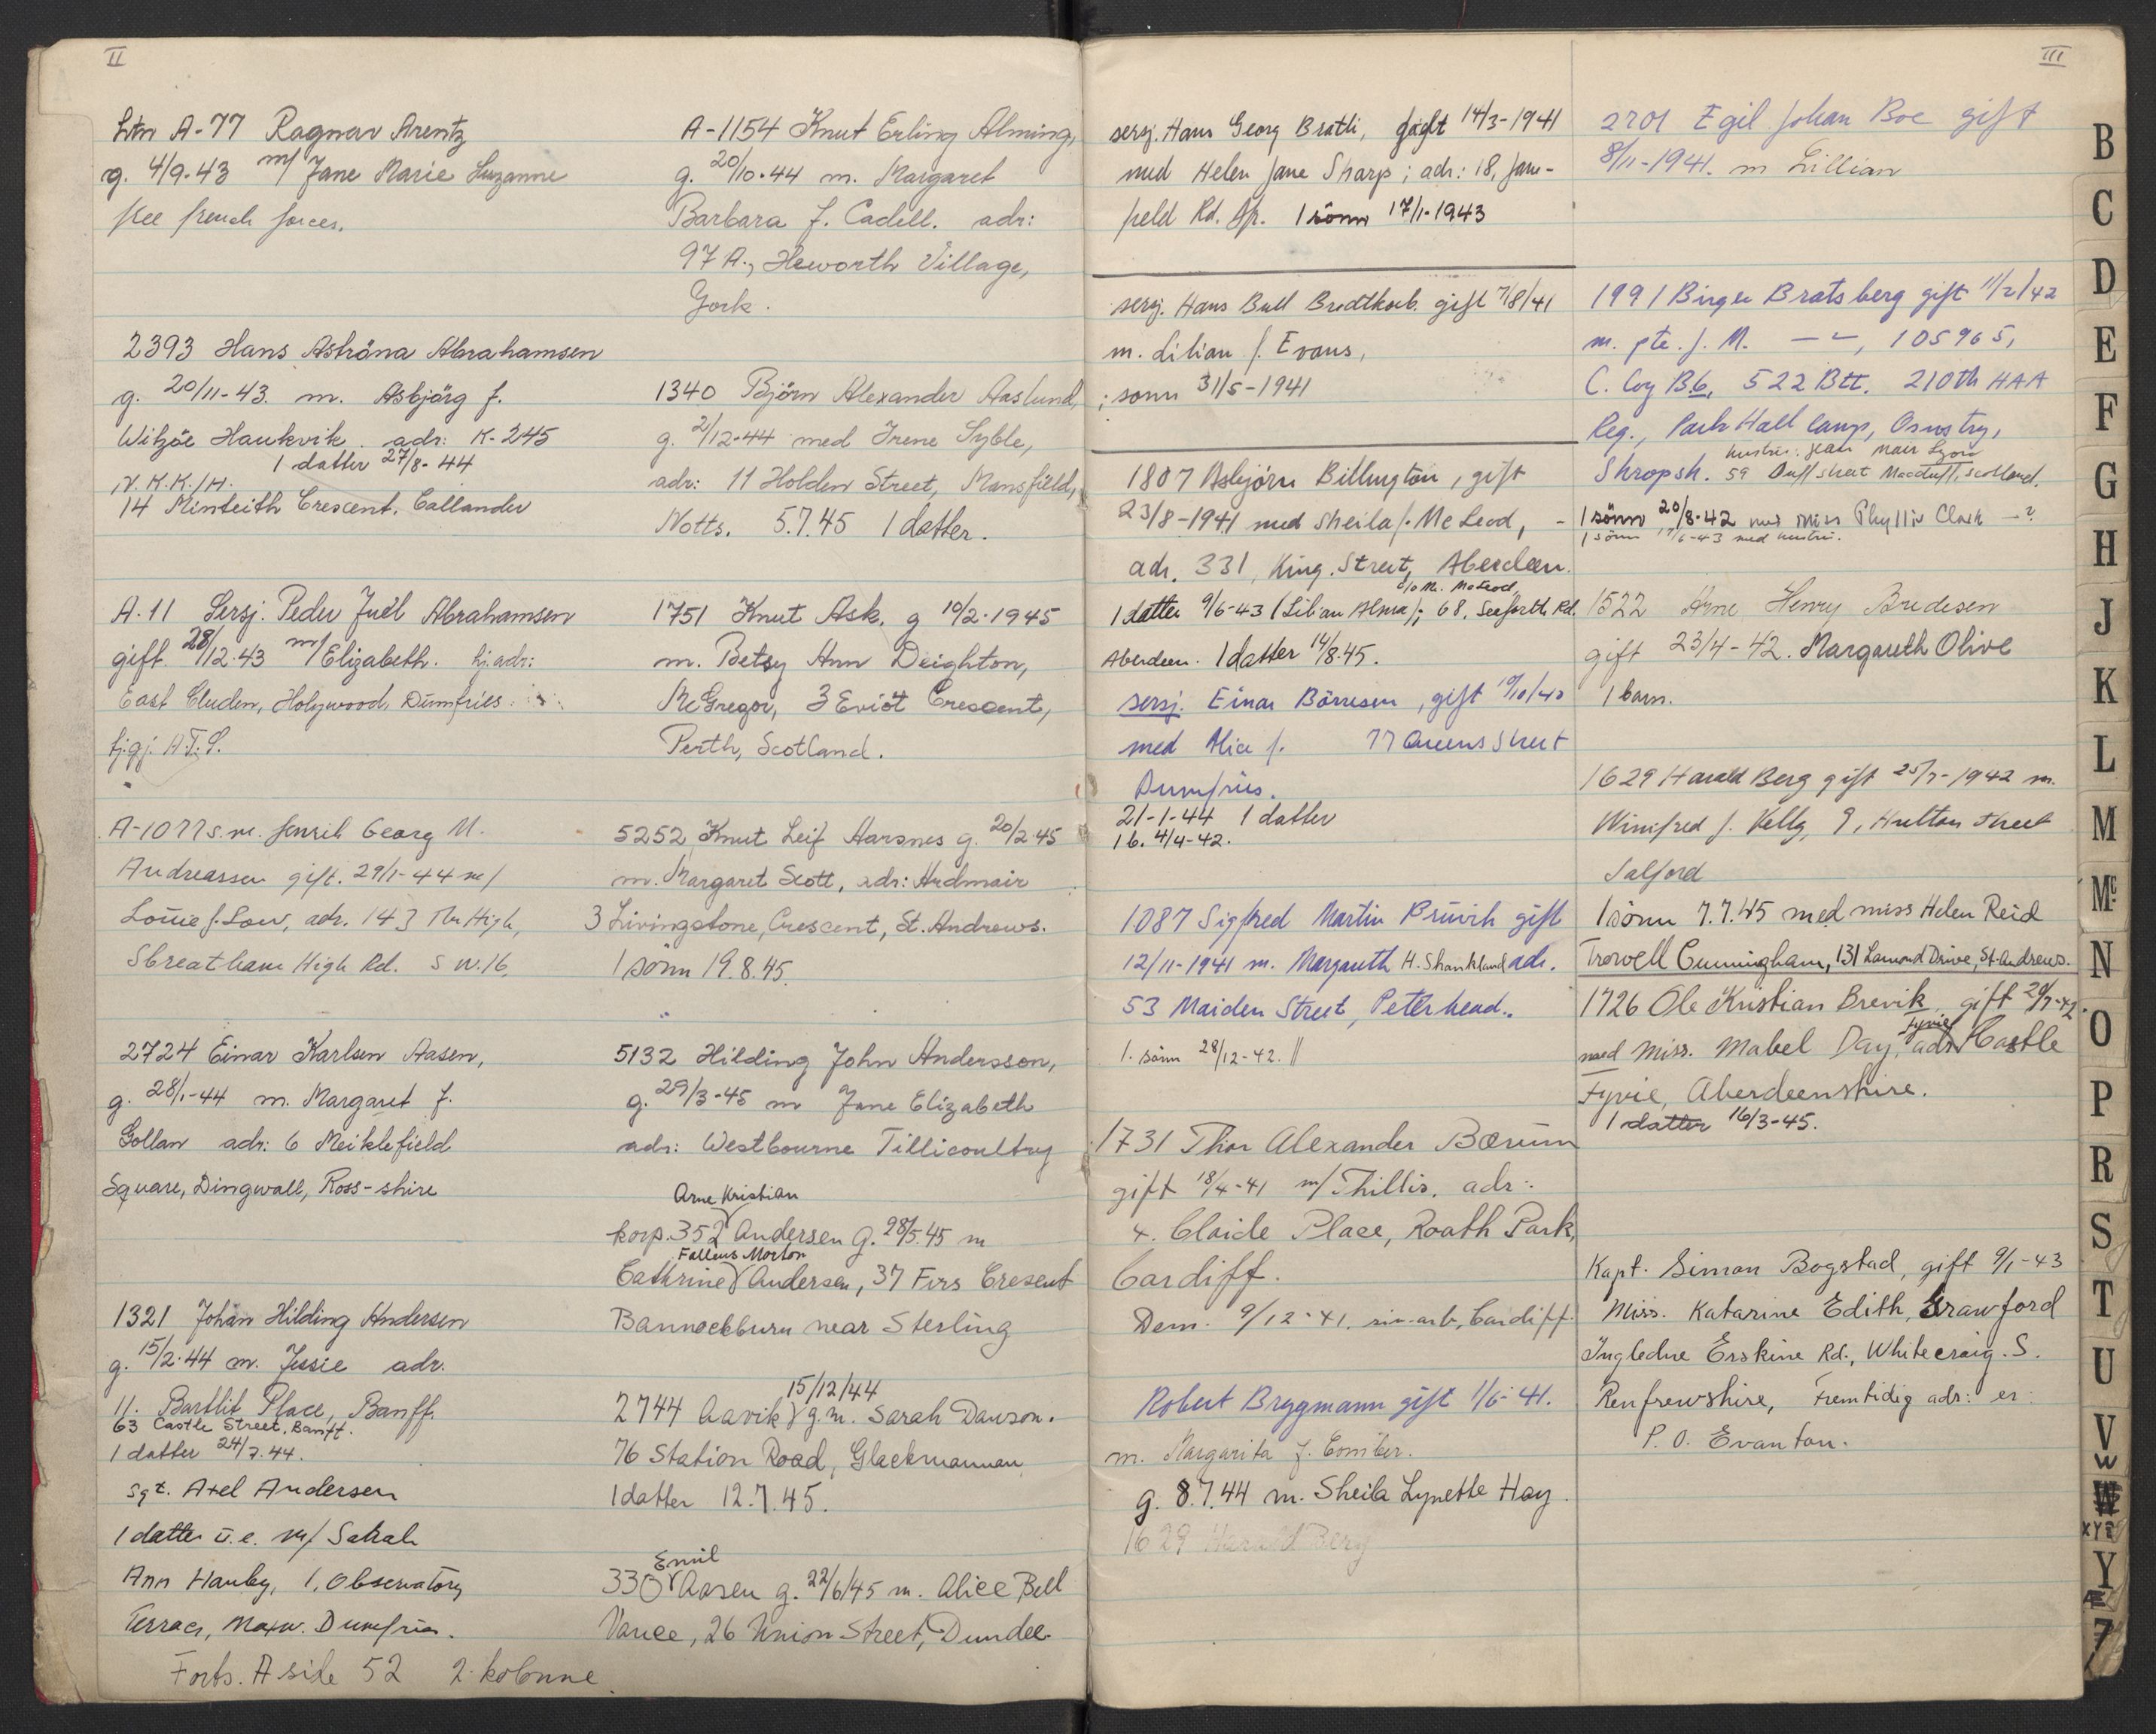 II
Ltn A-77 Ragnar Arentz
g. 4/9-43 m/ Jane Marie Suzanne
free french forces.
2393 Hans Aströna Abrahamsen
g. 20/11-43. m. Asbjörg f.
Witzöe Haukvik. adr: K-245
1 datter 27/8-44
N.K.K./H.
14 Minteith Crescent. Callander
A.11 Sersj. Peder Juel Abrahamsen
gift. 28/12.43 m/ Elizabeth. hj.adr:
East Cluden, Holywood, Dumfries.
tj.gj. A.T.S.
A-1077 s.m. Henrik Georg M.
Andreassen gift. 29/1-44 m/
Louie f. Low, adr. 143 The High,
Streatham High Rd. S.W.16.
2724 Einar Karlsen Aasen,
g. 28/1-44 m. Margaret f.
Gollan adr: 6 Meiklefield
Square, Dingwall, Ross-shire
1321 Johan Hilding Andersen
g. 15/2.44 m. Jessie adr.
11. Bartlit Place, Banff.
63 Castle Street, Banff.
1 datter 24/7.44.
sgt. Axel Andersen
1 datter u.e. m/ Sahrah
Ann Hanby, 1, Observatory
Terrace, Maxw. Dumfries.
Forts. A side 52 2. kolonne
A-1154 Knut Erling Alming,
g. 20/10.44 m. Margaret
Barbara f. Cadell. adr:
97 A., Heworth Village,
York.
1340 Björn Alexander Aaslund,
g. 2/12-44 med Irene Syble,
adr: 11 Holden Street, Mansfield,
Notts. 5.7.45 1 datter.
1751 Knut Ask. g 10/2.1945
m. Betsy Ann Deighton,
McGregor, 3 Eviot Crescent,
Perth, Scotland.
5252 Knut Leif Aarsnes g. 20/2.45
m. Margaret Scott, adr: Ardmair
3 Livingstone, Crescent, St. Andrews.
1 sönn 19.8.45.
5132 Hilding John Andersson,
g. 29/3-45 m Jane Elizabeth
adr: Westbourne Tillicoultry
Arne Kristian
korp. 352 Andersen g. 28/5.45 m
Fallens Morton
Cathrine Andersen, 37 Firs Cresent
Bannockburn near Sterling
15/12/44
2744 Aavik g. m. Sarah Dawson.
76 Station Road, Glackmannan
1 datter 12.7.45.
Emil
330 Aasen g. 22/6/45 m. Alice Bell
Vance, 26 Union Street, Dundee.
III
sersj. Hans Georg Bratli, gift 14/3-1941
med Helen Jane Sharp; adr: 18, Jane-
field Rd. 1 sönn 17/1-1943
sersj. Hans Bull Bredtkorb. gift 7/8/41
m. Lilian f. Evans,
; sonn 31/5-1941
1807 Asbjörn Billington, gift
23/8-1941 med Sheila f. Mc Leod, -
adr. 331, King. Street, Aberdeen.
c/o Mr. McLeod
1 datter 9/6-43 (Lilian Alma); 68, Seaforth Rd.
Aberdeen. 1 datter 14/8.45.
sersj. Einar Börresen, gift 19/10/40
med Alice f. 77 Queens Street
Dumfries.
21-1-44 1 datter
1 b. 4/4-42.
1087 Sigfred Martin Brüvik gift
12/11-1941 m. Margareth H. Shankland adr.
53 Maiden Street, Peterhead.
1. sönn 28/12-42. ||
1731 Thor Alexander Bærum
gift 18/4-41 m/ Thillis. adr:
4. Claide Place, Roath Park,
Cardiff.
Dem. 9/12-41. siv.arb. Cardiff.
Robert Bryggmann gift 1/6-41.
m. Margarita f. Comber.
g. 8.7.44 m. Sheila Lynette Hay.
1629 Harald Berg
2701 Egil Johan Boe gift
8/11-1941. m Lillian
1991 Birger Bratsberg gift 11/2/42
m. pte. J. M. — " —, 105965,
C. Coy B6, 522 Btt. 210th HAA
Reg., Park Hall Camp, Osnstry,
hustru: Jean Mair Lyon
Shropsh. 59 Duff Street Macduff, Scotland.
1 sönn 20/8-42 med Miss Phyllis Clark —?
1 sönn 17/6-43 med hustru.
1522 Arne Henry Bredesen
gift 23/4-42. Margareth Olive
1 barn.
1629 Harald Berg gift 25/7-1942 m.
Winifred f. Kelly, 9, Hulton Street
Salford
1 sönn 7.7.45 med miss Helen Reid
Trowell Cunningham, 131 Lamond Drive, St. Andrews.
1726 Ole Kristian Brevik gift 29/7-42.
med Miss. Mabel Day, adr. Fyvie Castle
Fyvie, Aberdeenshire.
1 datter 16/3-45.
Kapt. Simon Bogstad, gift 9/1-43
Miss. Katarine Edith, Crawford
Ingledne Erskine Rd., Whitecraig. S.
Renfrewshire, Fremtidig adr: er:
P.O. Evanton.
B
C
D
E
F
G
H
J
K
L
M
Mc
N
O
P
R
S
T
U
V
W
W
XYZ
Y
Æ
Z